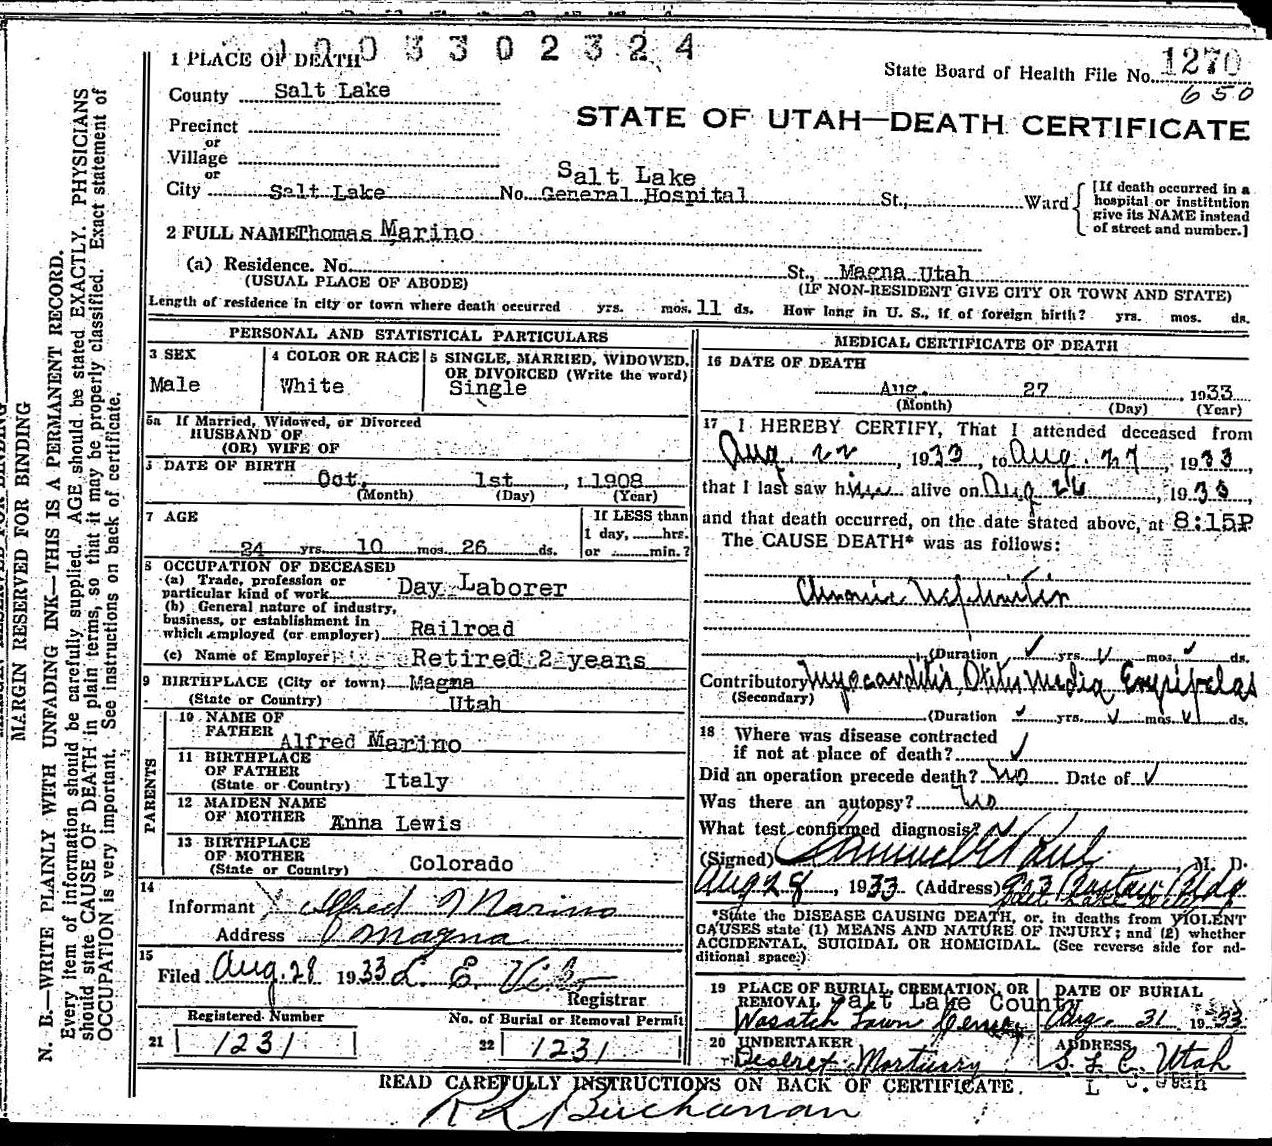 1003302324
1 PLACE OF DEATH
State Board of Health File No. 1270
650
County Salt Lake
STATE OF UTAH—DEATH CERTIFICATE
Precinct
or
Village
or
City Salt Lake No. Salt Lake General Hospital St., Ward
[If death occurred in a
hospital or institution
give its NAME instead
of street and number.]
2 FULL NAME Thomas Marino
(a) Residence. No. St., Magna Utah
(USUAL PLACE OF ABODE) (IF NON-RESIDENT GIVE CITY OR TOWN AND STATE)
Length of residence in city or town where death occurred yrs. mos. 11 ds. How long in U. S., if of foreign birth? yrs. mos. ds.
PERSONAL AND STATISTICAL PARTICULARS
3 SEX
Male
4 COLOR OR RACE
White
5 SINGLE, MARRIED, WIDOWED,
OR DIVORCED (Write the word)
Single
5a If Married, Widowed, or Divorced
HUSBAND OF
(OR) WIFE OF
DATE OF BIRTH
Oct. 1st , 1 1908
(Month) (Day) (Year)
7 AGE
24 yrs. 10 mos. 26 ds.
If LESS than
1 day, hrs.
or min.?
8 OCCUPATION OF DECEASED
(a) Trade, profession or
particular kind of work Day Laborer
(b) General nature of industry,
business, or establishment in
which employed (or employer) Railroad
(c) Name of Employer Retired 2 years
9 BIRTHPLACE (City or town) Magna
(State or Country) Utah
PARENTS
10 NAME OF
FATHER Alfred Marino
11 BIRTHPLACE
OF FATHER
(State or Country) Italy
12 MAIDEN NAME
OF MOTHER Anna Lewis
13 BIRTHPLACE
OF MOTHER
(State or Country) Colorado
14
Informant Alfred Marino
Address Magna
15
Filed Aug. 28 1933 L. E.
Registrar
Registered Number
21 1231
No. of Burial or Removal Permit
22 1231
MEDICAL CERTIFICATE OF DEATH
16 DATE OF DEATH
Aug. 27 , 1933
(Month) (Day) (Year)
17 I HEREBY CERTIFY, That I attended deceased from
Aug. 22 , 1933, to Aug. 27 , 1933,
that I last saw him alive on Aug 26 , 1933,
and that death occurred, on the date stated above, at 8:15P
The CAUSE DEATH* was as follows:
Chronic Nephritis
(Duration yrs. mos. ds.
Contributory Myocarditis, Otitis Media, Erysipelas
(Secondary)
(Duration yrs. mos. ds.
18 Where was disease contracted
if not at place of death?
Did an operation precede death? no Date of
Was there an autopsy? no
What test confirmed diagnosis?
(Signed) Samuel G Paul M. D.
Aug 28 , 1933 (Address) Bldg
*State the DISEASE CAUSING DEATH, or, in deaths from VIOLENT
CAUSES state (1) MEANS AND NATURE OF INJURY; and (2) whether
ACCIDENTAL, SUICIDAL OR HOMICIDAL. (See reverse side for ad-
ditional space.)
19 PLACE OF BURIAL, CREMATION, OR
REMOVAL Salt Lake County
Wasatch Lawn Cemey
DATE OF BURIAL
Aug. 31 1933
20 UNDERTAKER
Deseret Mortuary
ADDRESS
S. L. C. Utah
L C. Utah
READ CAREFULLY INSTRUCTIONS ON BACK OF CERTIFICATE.
R L Buchanan
MARGIN RESERVED FOR BINDING
N. B.—WRITE PLAINLY WITH UNFADING INK—THIS IS A PERMANENT RECORD.
Every item of information should be carefully supplied. AGE should be stated EXACTLY. PHYSICIANS
should state CAUSE OF DEATH in plain terms, so that it may be properly classified. Exact statement of
OCCUPATION is very important. See instructions on back of certificate.